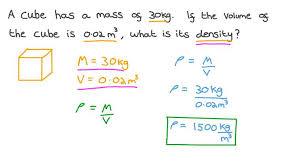 A cube has a mass of 30kg. If the volume of
the cube is 0.02m³, what is its density?
M = 30kg
V = 0.02m³
ρ = M/V
ρ = M/V
ρ = 30kg/0.02m³
ρ = 1500 kg/m³